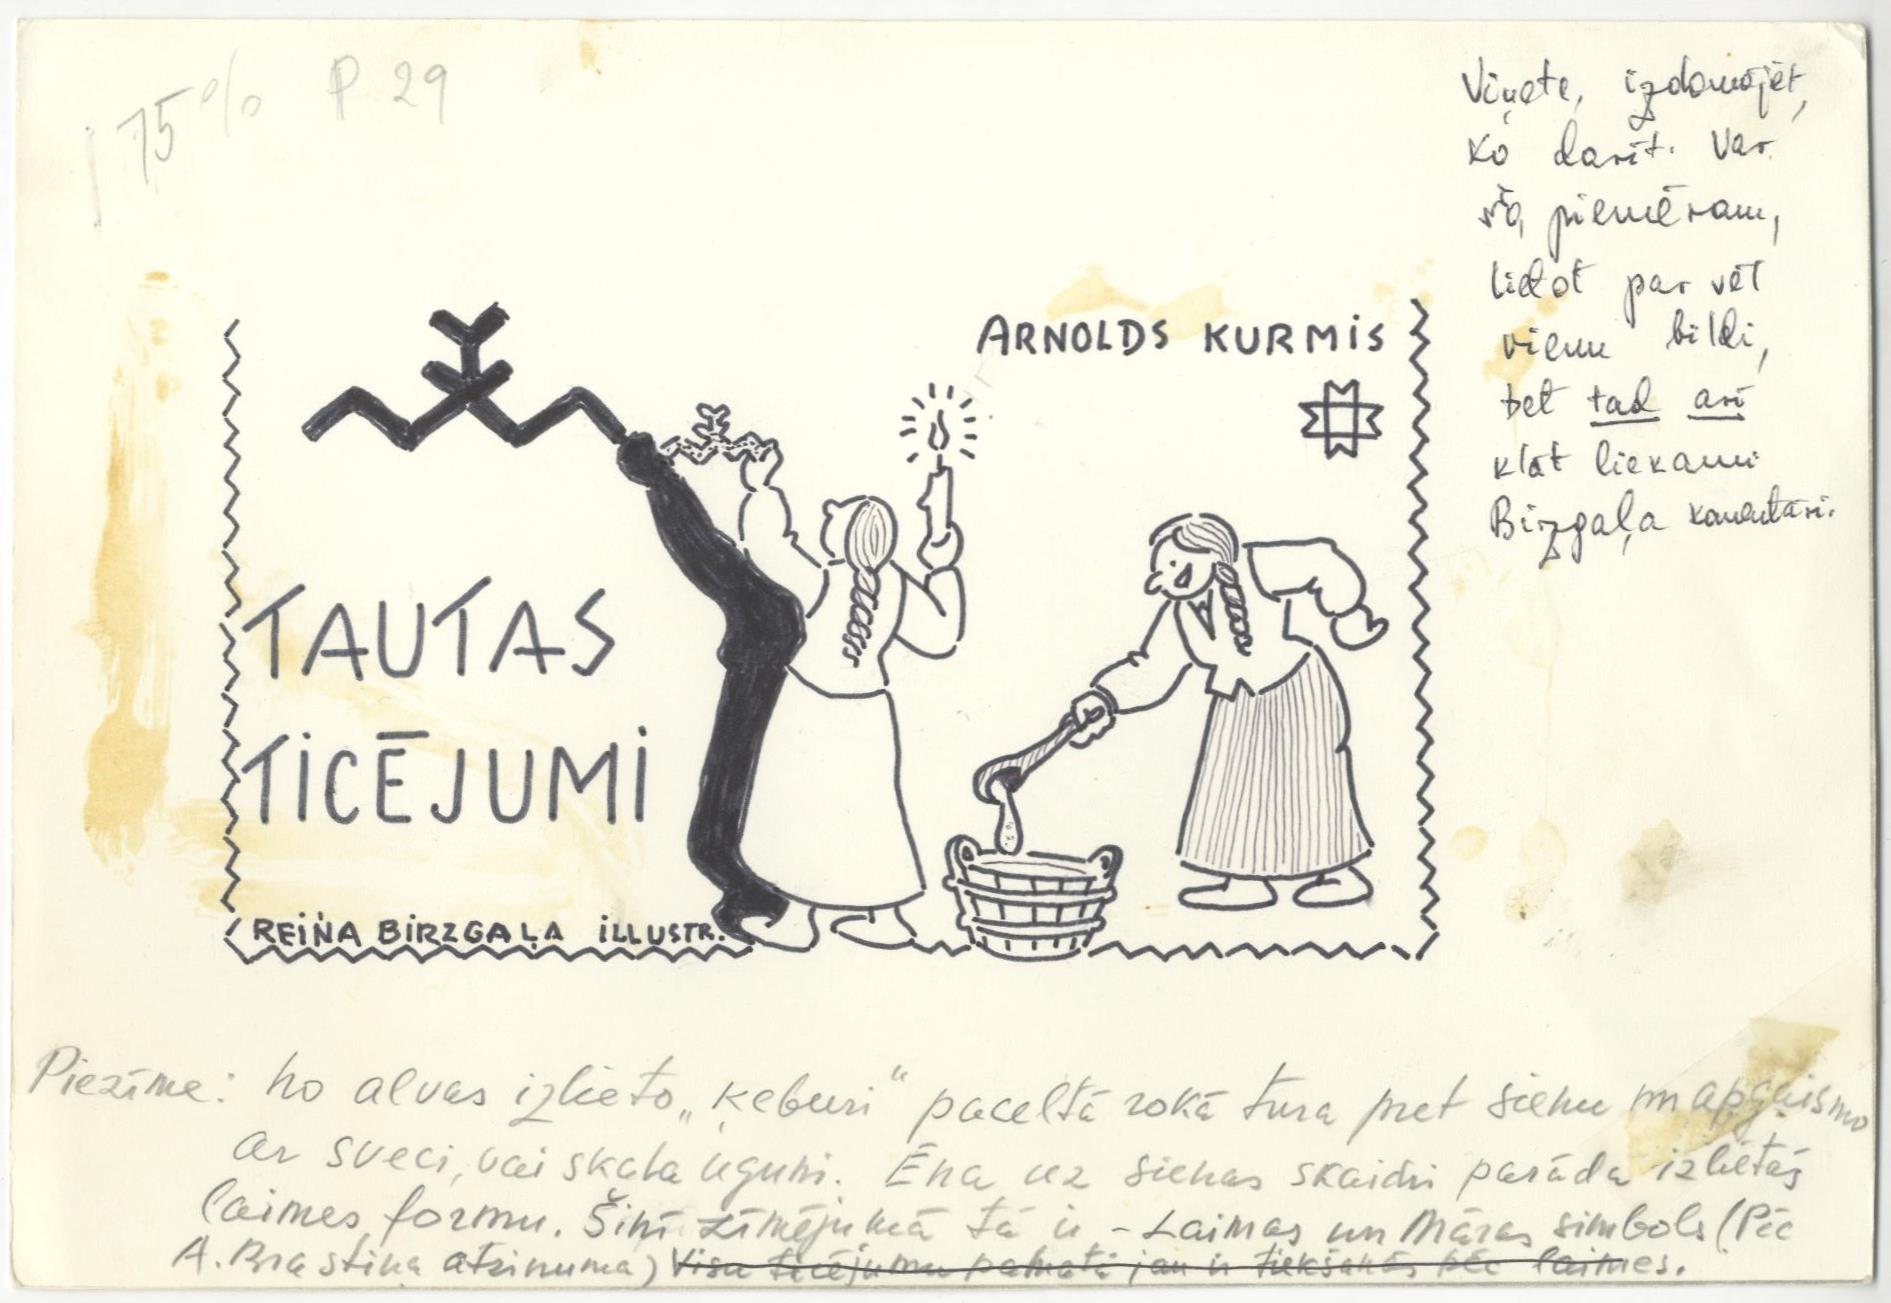 75% P 29
Viņete, izdomājēt,
ko darīt. Var
šo, piemēram,
lidot par vēl
vienu bildi,
bet tad arī
klāt liekami
Birzgaļa komentāri.
ARNOLDS KURMIS
TAUTAS
TICĒJUMI
REIŅA BIRZGAĻA ILLUSTR.
Piezīme: no alvas izlieto „ķeburi“ paceltā rokā tura pret sienu un apgaismo
ar sveci, vai skala uguni. Ēna uz sienas skaidri parāda izlietās
laimes formu. Šinī zīmējumā tā ir – Laimas un Māras simbols (Pēc
A. Brastiņa atzinuma) Visu ticējumu pamatā jau ir tiekšanās pēc laimes.